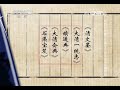 《清文鉴》
《大清一统志》
《续通典》
《大清会典》
《石渠宝笈》